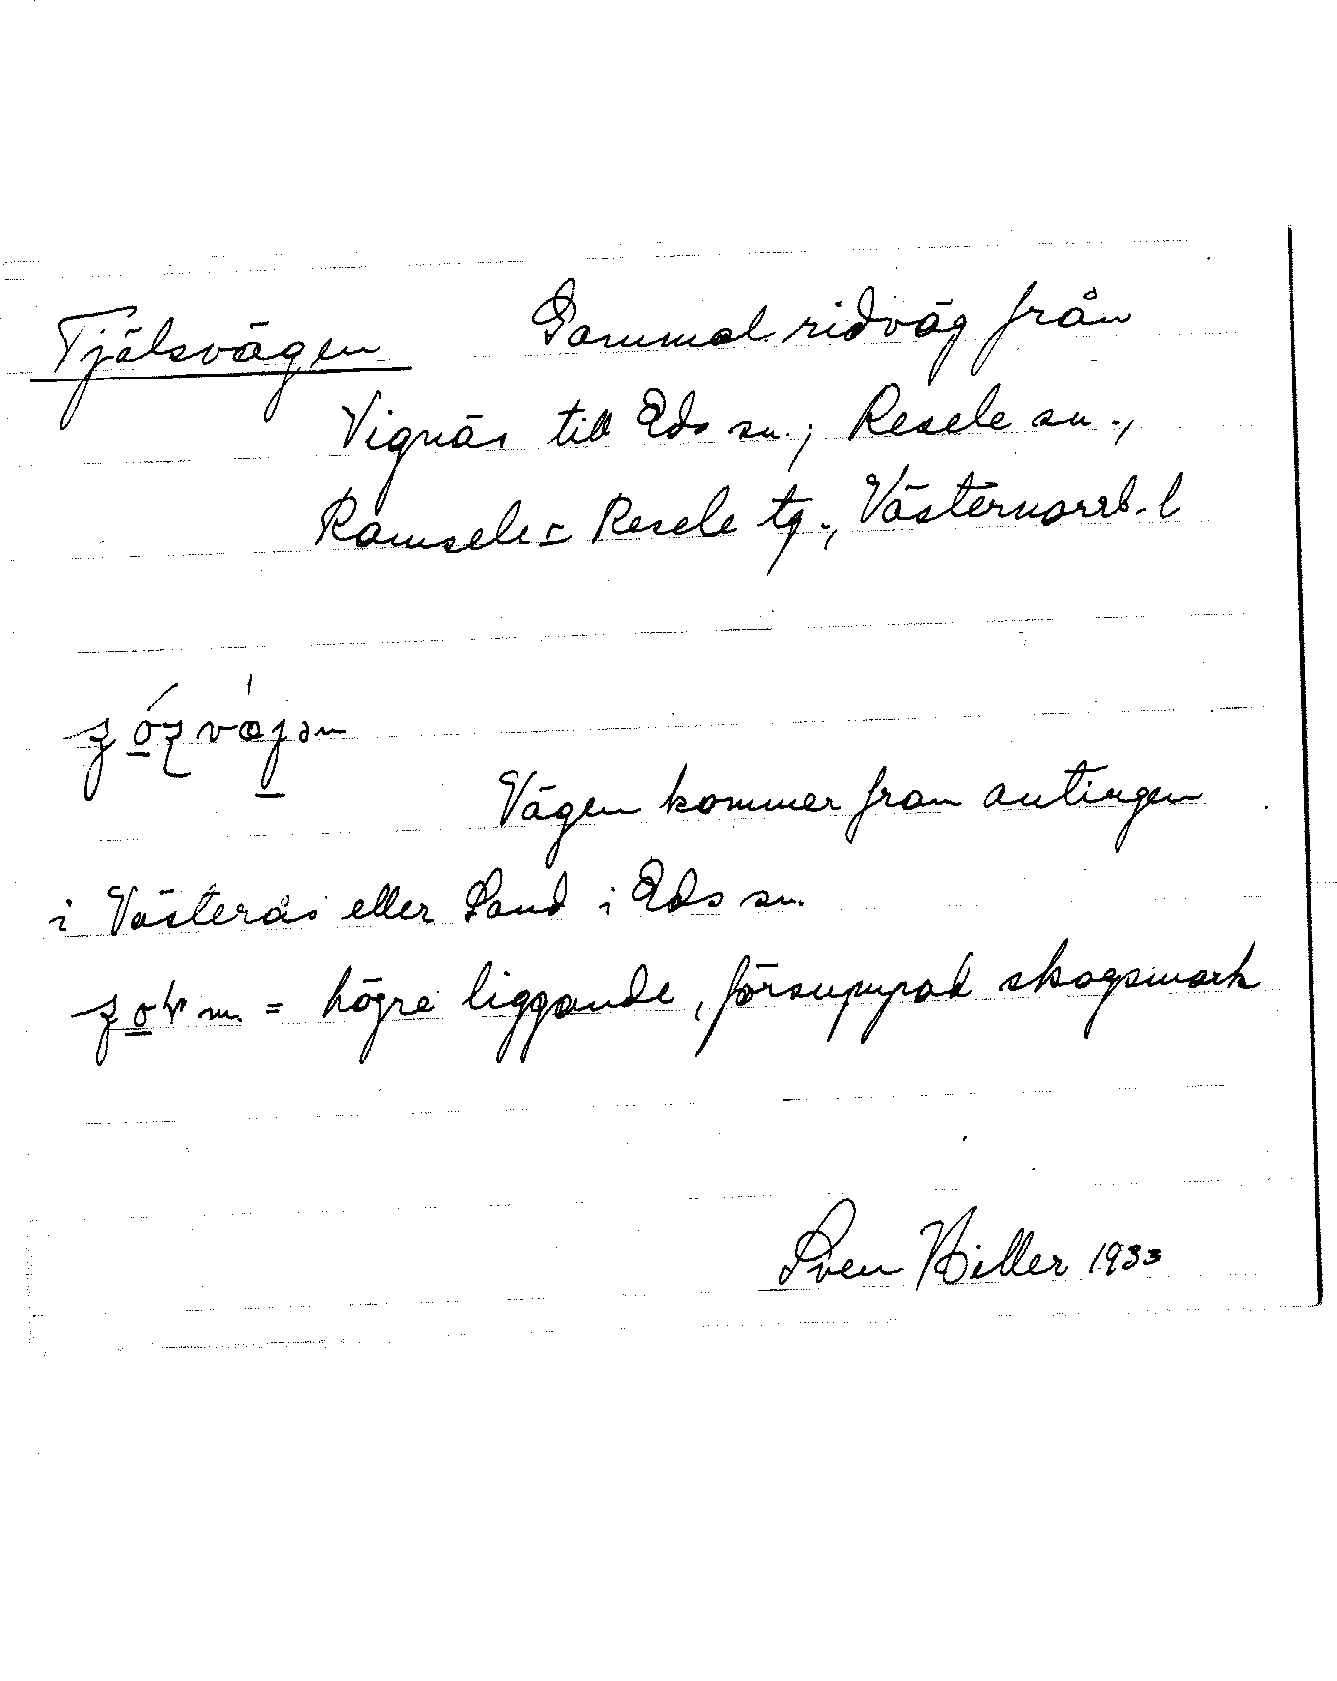 Tjälsvägen Gammal ridväg från
Vignäs till Eds sn.; Resele sn.,
Ramsele = Resele tg., Västernorrl. l
Vägen kommer fran antingen
i Västerås eller Sand i Eds sn.
m. = högre liggande, försumpad skogsmark
Sven Hiller 1933